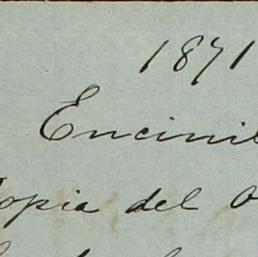 1871
Encinil
Copia del O